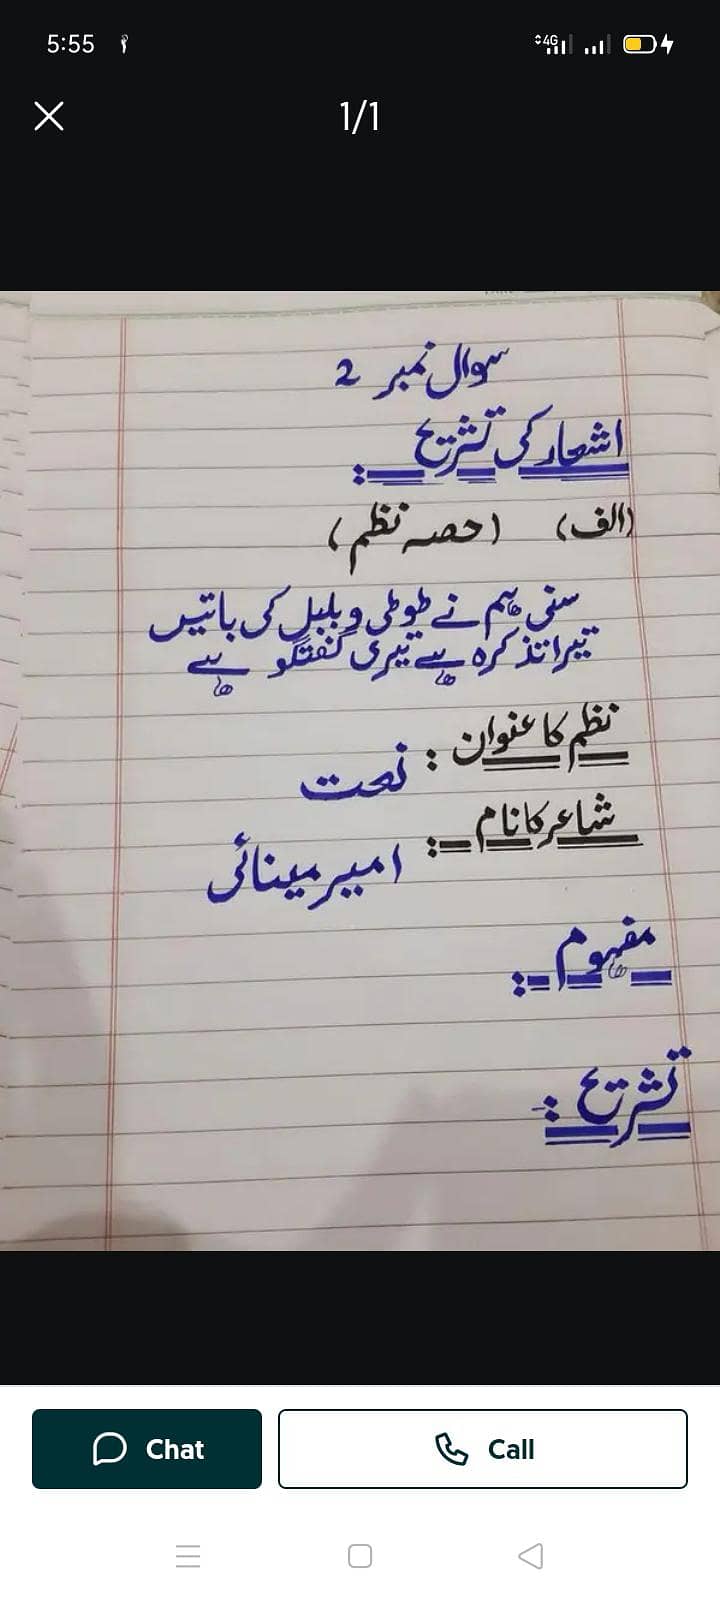 5:55
4G
1/1
سوال نمبر 2
اشعار کی تشریح :
(الف) (حصہ نظم)
سنی ہم نے طوطی و بلبل کی باتیں
تیرا تذکرہ ہے تیری گفتگو ہے
نظم کا عنوان : نعت
شاعر کا نام : امیر مینائی
مفہوم :
تشریح :
Chat
Call